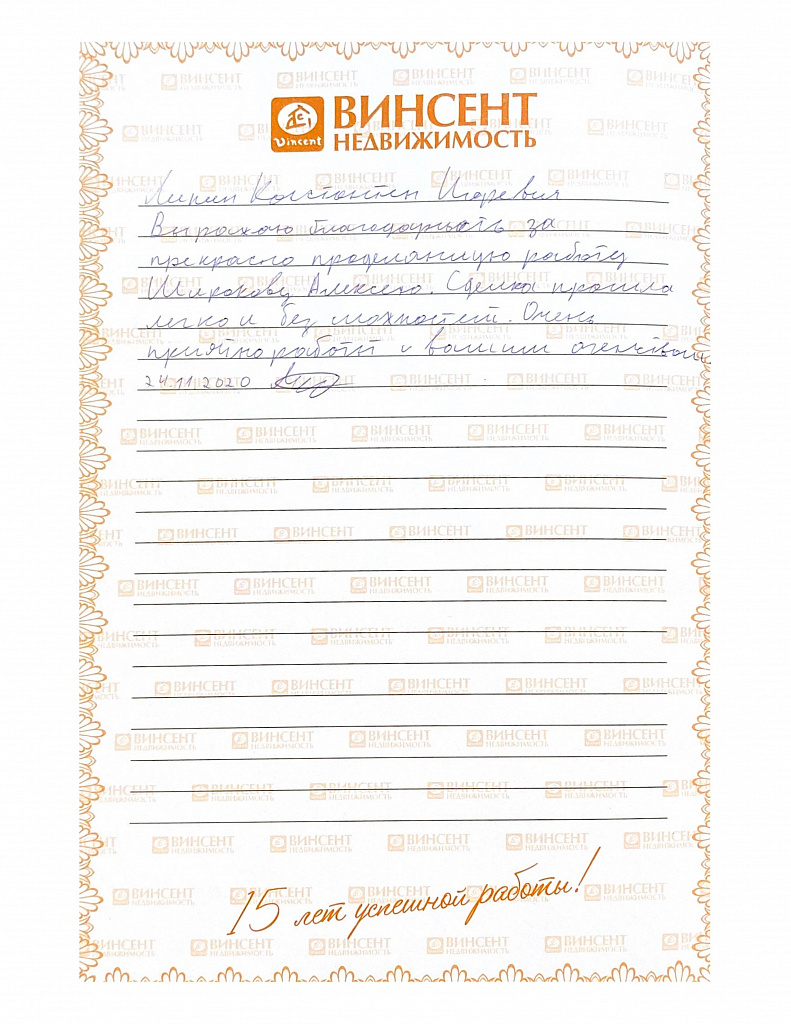 ВИНСЕНТ
НЕДВИЖИМОСТЬ
Vincent
Константин Игоревич
Выражаю благодарность за
прекрасно проделанную работу
Широкову Алексею. Сделка прошла
легко и без . Очень
приятно работать с вашим
24.11.2020
15 лет успешной работы!